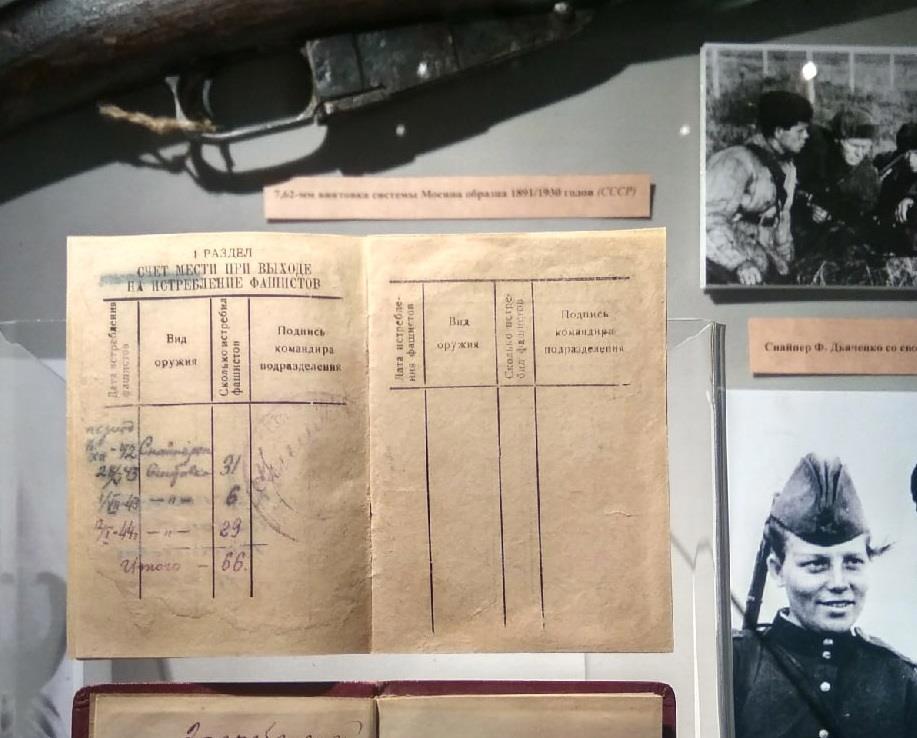 7,62-мм винтовка системы Мосина образца 1891/1930 годов (СССР)
1 РАЗДЕЛ
СЧЕТ МЕСТИ ПРИ ВЫХОДЕ
НА ИСТРЕБЛЕНИЕ ФАШИСТОВ
Дата истребления
фашистов
Вид
оружия
Сколько истребил
фашистов
Подпись
командира
подразделения
период
XII-42 Снайперск
43 винтовка 31
1/VII-43 — " — 6
I-44г — " — 29
Итого - 66.
Дата истребле-
ния фашистов
Вид
оружия
Сколько истре-
бил фашистов
Подпись
командира
подразделения
Снайпер Ф. Дьяченко со сво